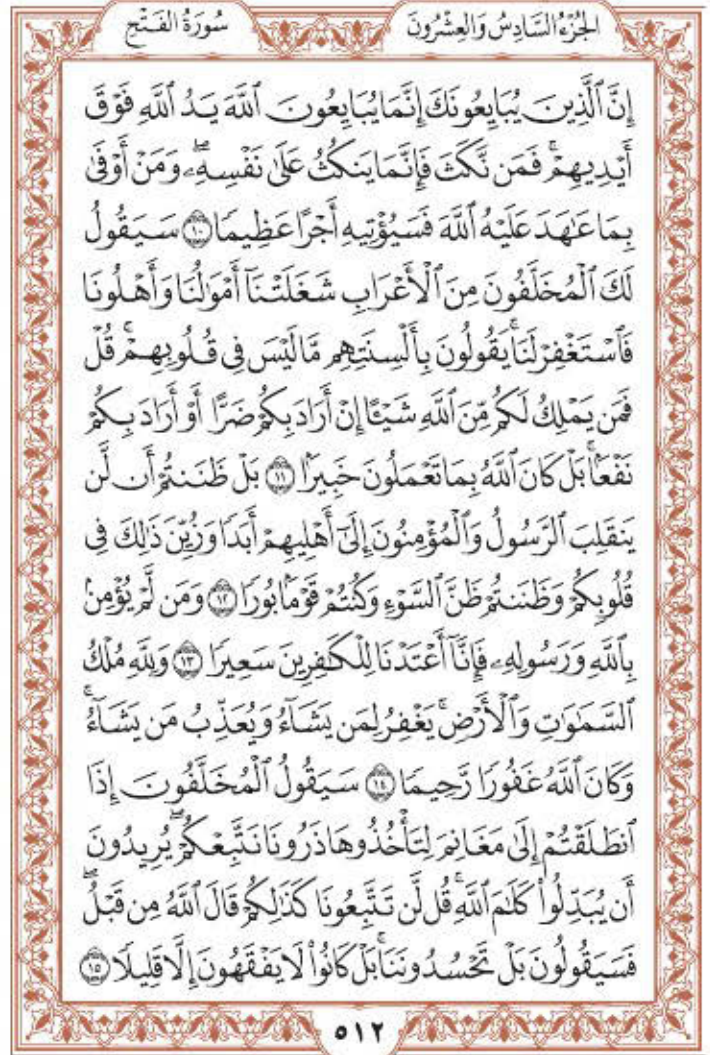 الجُزْءُ السَّادِسُ وَالعِشْرُونَ سُورَةُ الفَتْحِ
إِنَّ ٱلَّذِينَ يُبَايِعُونَكَ إِنَّمَا يُبَايِعُونَ ٱللَّهَ يَدُ ٱللَّهِ فَوْقَ
أَيْدِيهِمْۚ فَمَن نَّكَثَ فَإِنَّمَا يَنكُثُ عَلَىٰ نَفْسِهِۦۖ وَمَنْ أَوْفَىٰ
بِمَا عَٰهَدَ عَلَيْهُ ٱللَّهَ فَسَيُؤْتِيهِ أَجْرًا عَظِيمٗا ١٠ سَيَقُولُ
لَكَ ٱلْمُخَلَّفُونَ مِنَ ٱلْأَعْرَابِ شَغَلَتْنَآ أَمْوَٰلُنَا وَأَهْلُونَا
فَٱسْتَغْفِرْ لَنَاۚ يَقُولُونَ بِأَلْسِنَتِهِم مَّا لَيْسَ فِي قُلُوبِهِمْۚ قُلْ
فَمَن يَمْلِكُ لَكُم مِّنَ ٱللَّهِ شَيْـًٔا إِنْ أَرَادَ بِكُمْ ضَرًّا أَوْ أَرَادَ بِكُمْ
نَفْعَۢاۚ بَلْ كَانَ ٱللَّهُ بِمَا تَعْمَلُونَ خَبِيرَۢا ١١ بَلْ ظَنَنتُمْ أَن لَّن
يَنقَلِبَ ٱلرَّسُولُ وَٱلْمُؤْمِنُونَ إِلَىٰٓ أَهْلِيهِمْ أَبَدٗا وَزُيِّنَ ذَٰلِكَ فِي
قُلُوبِكُمْ وَظَنَنتُمْ ظَنَّ ٱلسَّوْءِ وَكُنتُمْ قَوْمَۢا بُورٗا ١٢ وَمَن لَّمْ يُؤْمِنۢ
بِٱللَّهِ وَرَسُولِهِۦ فَإِنَّآ أَعْتَدْنَا لِلْكَٰفِرِينَ سَعِيرٗا ١٣ وَلِلَّهِ مُلْكُ
ٱلسَّمَٰوَٰتِ وَٱلْأَرْضِۚ يَغْفِرُ لِمَن يَشَآءُ وَيُعَذِّبُ مَن يَشَآءُۚ
وَكَانَ ٱللَّهُ غَفُورٗا رَّحِيمٗا ١٤ سَيَقُولُ ٱلْمُخَلَّفُونَ إِذَا
ٱنطَلَقْتُمْ إِلَىٰ مَغَانِمَ لِتَأْخُذُوهَا ذَرُونَا نَتَّبِعْكُمْۖ يُرِيدُونَ
أَن يُبَدِّلُوا۟ كَلَٰمَ ٱللَّهِۚ قُل لَّن تَتَّبِعُونَا كَذَٰلِكُمْ قَالَ ٱللَّهُ مِن قَبْلُۖ
فَسَيَقُولُونَ بَلْ تَحْسُدُونَنَاۚ بَلْ كَانُوا۟ لَا يَفْقَهُونَ إِلَّا قَلِيلٗا ١٥
٥١٢